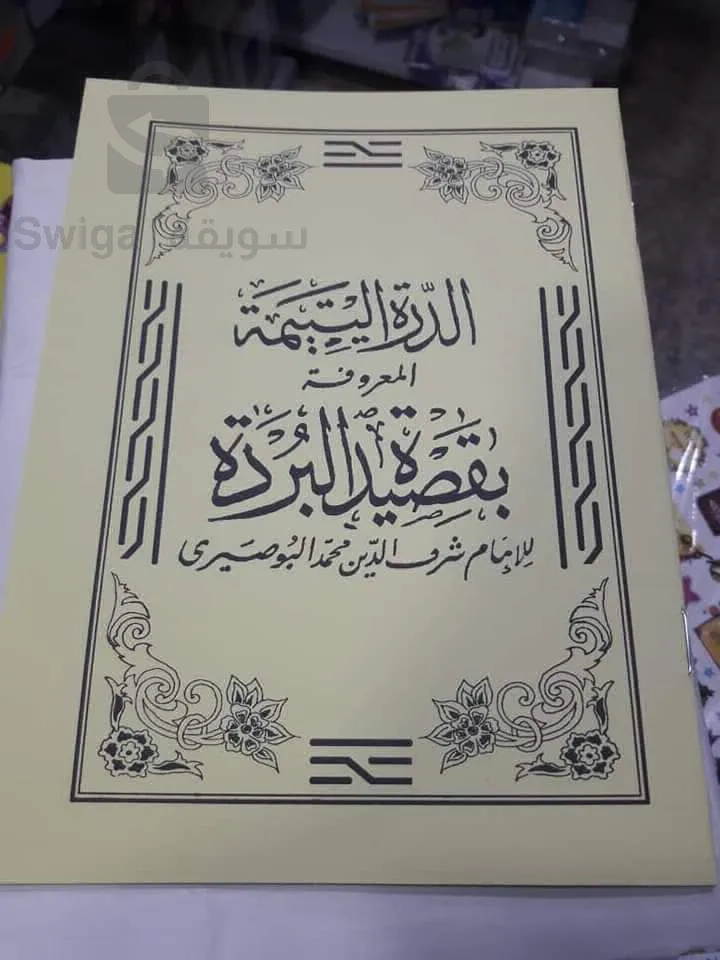 Swiga سويقة
الدّرة اليتيمة
المعروفة
بقصيدة البُردة
للإمام شرف الدّين محمّد البوصيرى